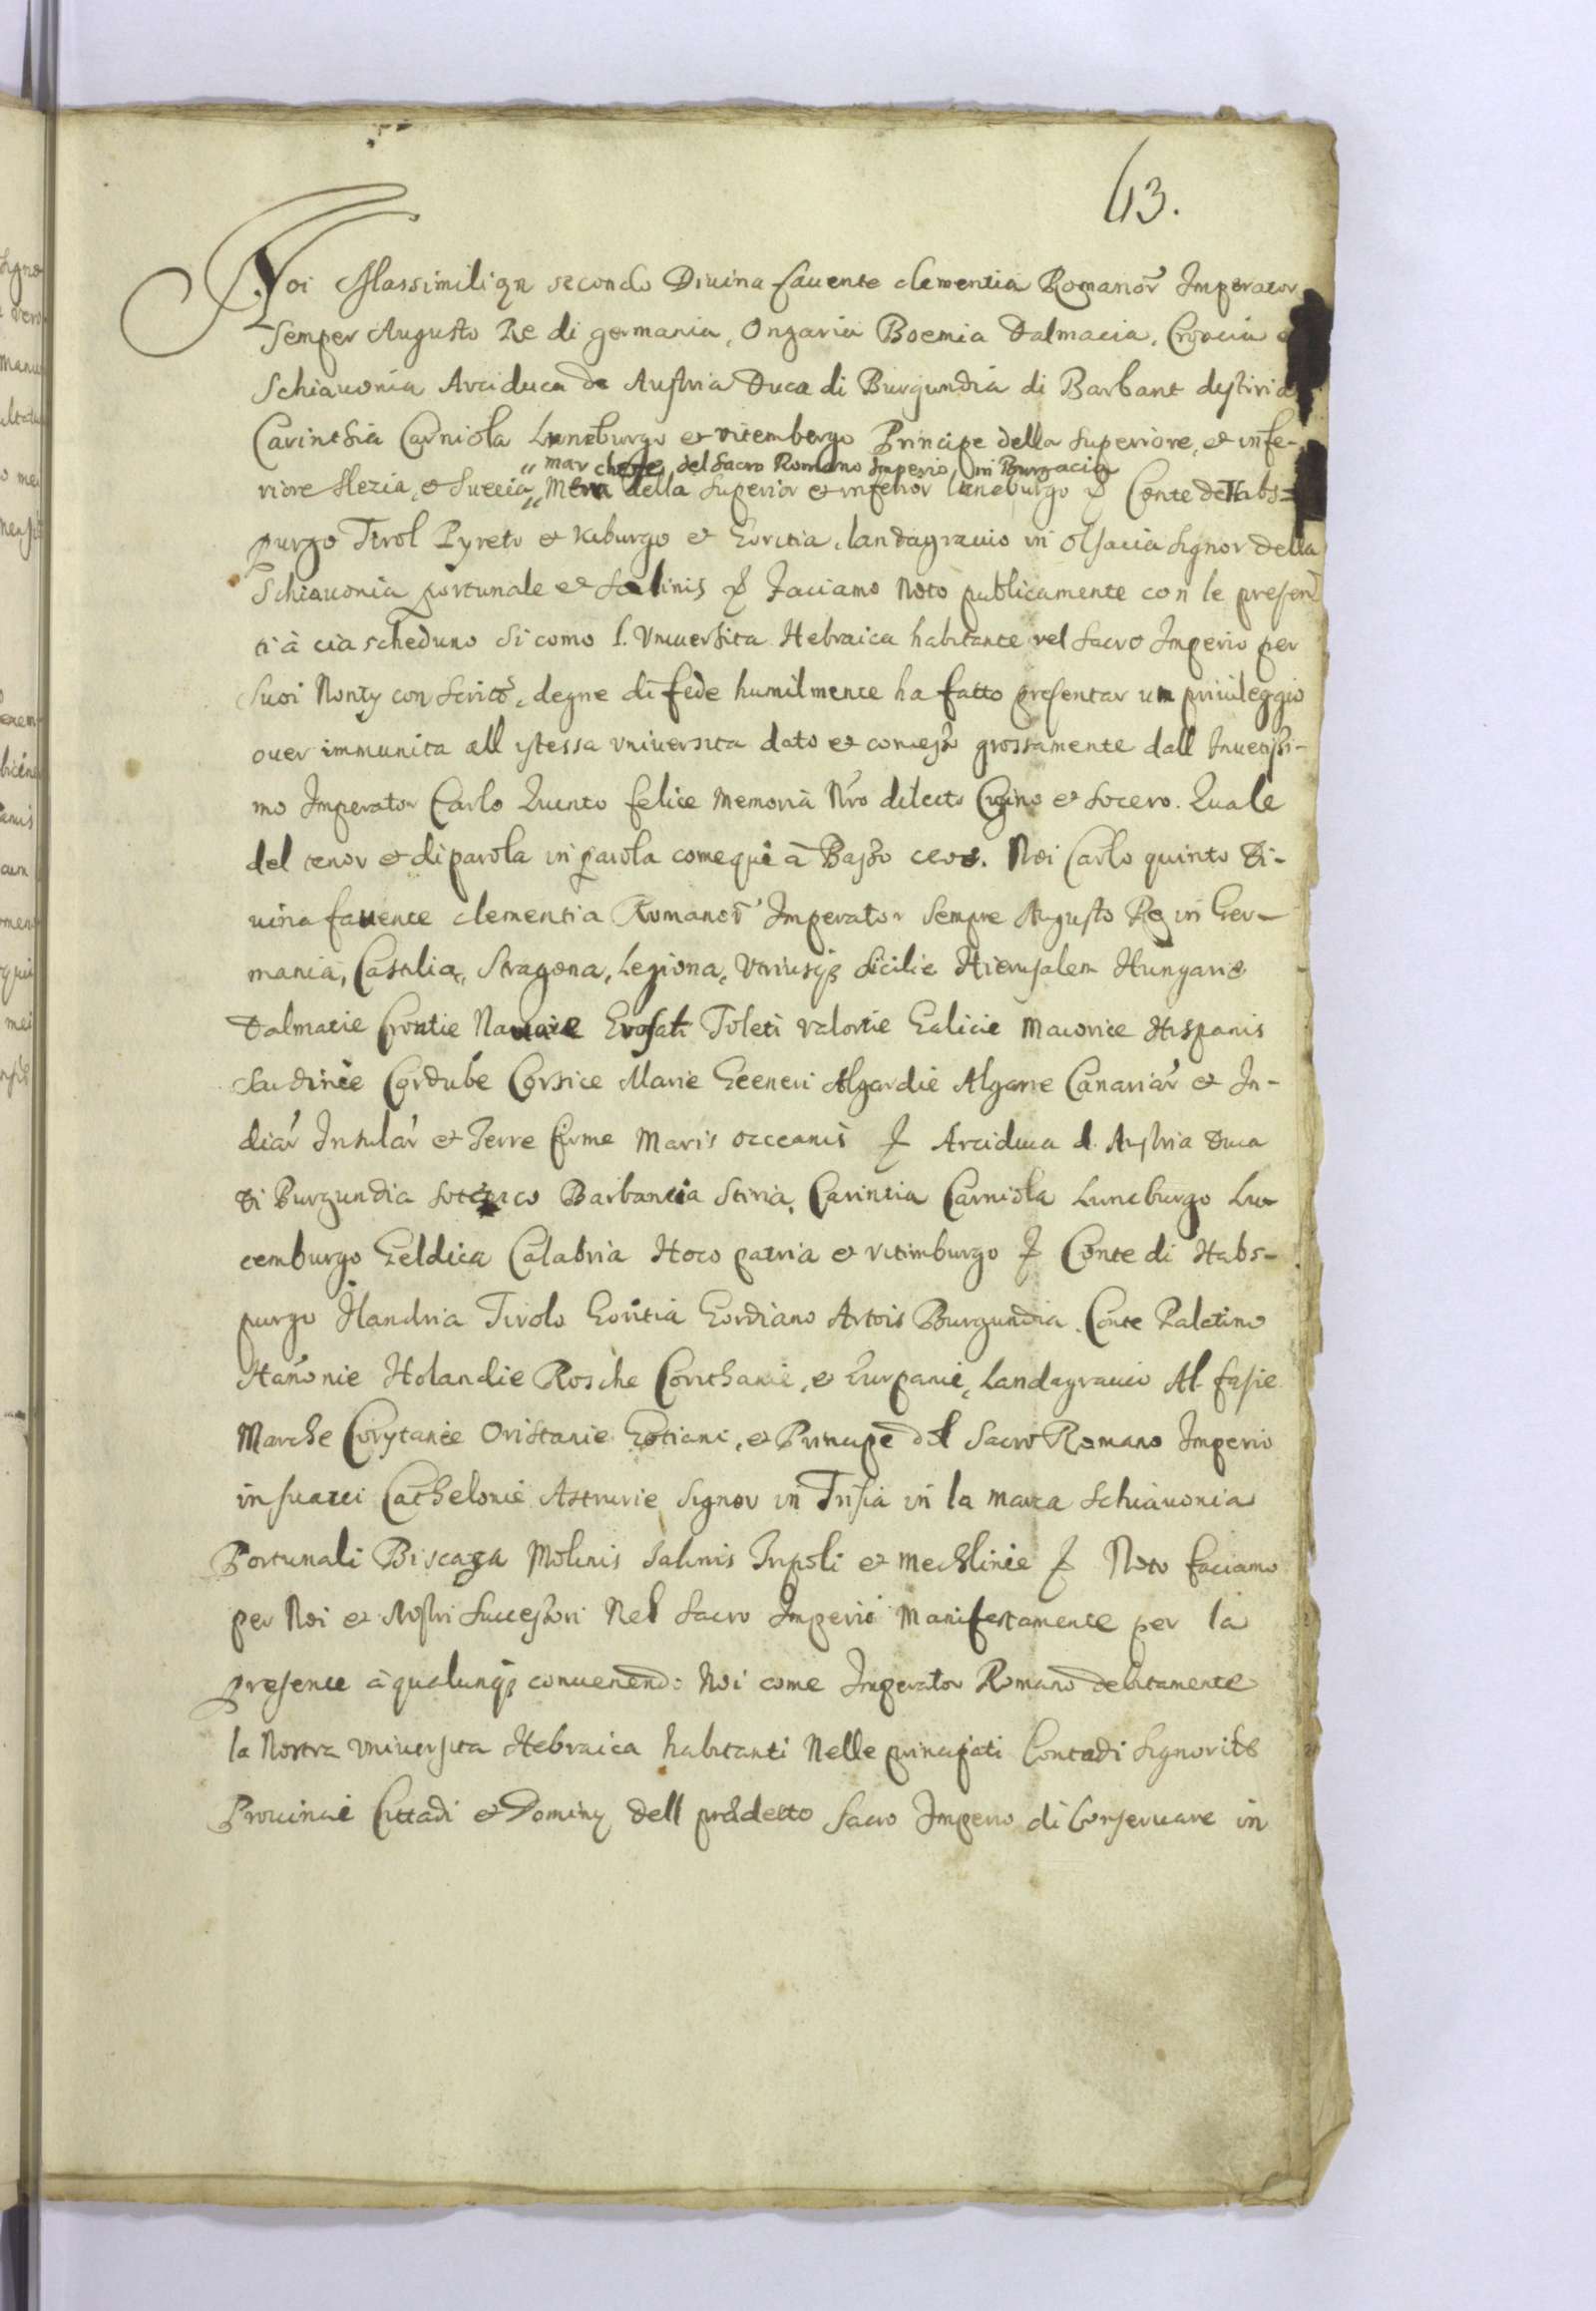 63.
Noi Massimilign secondo Diuina fauente clementia Romanor̃ Imperator
Semper Augusto Re di germania, Ongaria Boemia Dalmacia, Croacia
Schiauonia Arciduca de Austria Duca di Burgundia di Barbant destiria
Carinthia Carniola Luneburgo et vitembergo Principe della superiore, et infe-
marchese del Sacro Romano Imperio, in Burgacia
riore slezia, et Suecia, della superior et inferior luneburgo Conte de Habs=
purgo Tirol Pyreto et Kiburgo et Goritia, landagrauio in Olsacia signor della
Schiauonia portunale et salinis faciamo noto publicamente con le presen
ti à ciascheduno si como l. Vniuersita Hebraica habitante nel sacro Imperio per
suoi Nontij con scritõ, degne di fede humilmente ha fatto presentar un priuileggio
ouer immunita all istessa vniuersita dato et concesso grossamente dall Inuetissi-
mo Imperator Carlo Quinto felice memoria Nr̃o dilecto Cugino et socero. Quale
del tenor et di parola in parola come qui à Basso ceoe. Noi Carlo quinto Di-
uina fauente clementia Romanor̃ Imperator sempre Augusto Re in Ger-
mania, Castilia, Aragona, Legiona, Vtriusq; Sicilie Hierusalem Hungarie
Dalmatie Croatie Nauarie Toleti valortie Galicie Maiorice Hispanis
Sardinie Cordube Corsice Marie Geeneri Algardie Algarre Canariar̃ et In-
diar̃ Insular̃ et Terre firme Maris occeanis Arciduca d. Austria Duca
di Burgundia Barbantia Stiria, Carintia Carniola Luneburgo Lu-
cemburgo Geldica Calabria Hoco patria et vitimburgo Conte di Habs-
purgo Flandria Tirolo Goritia Gordiano Artois Burgundia. Conte Palatino
Hañonie Holandie Rosche Corithanie, et Eurpanie, Landagrauio Al. fasie
Marche Corytanie Oristanie Gotiani, et Principe del Sacro Romano Imperio
in suauci Cathelonie Asturie signor in Frisia in la marca Schiauonia
Portunali Biscaga Molinis Salinis Tripoli et Mechlinie Noto faciamo
per Noi et Nostri successori Nel Sacro Imperio Manifestamente per la
presente à qualunq; conuenendo Noi come Imperator Romano debitamente
la Nostra vniuersita Hebraica habitanti Nelle principati Contadi signorite
Prouincie Cittadi et Dominij dell predetto Sacro Imperio di Conseruare in